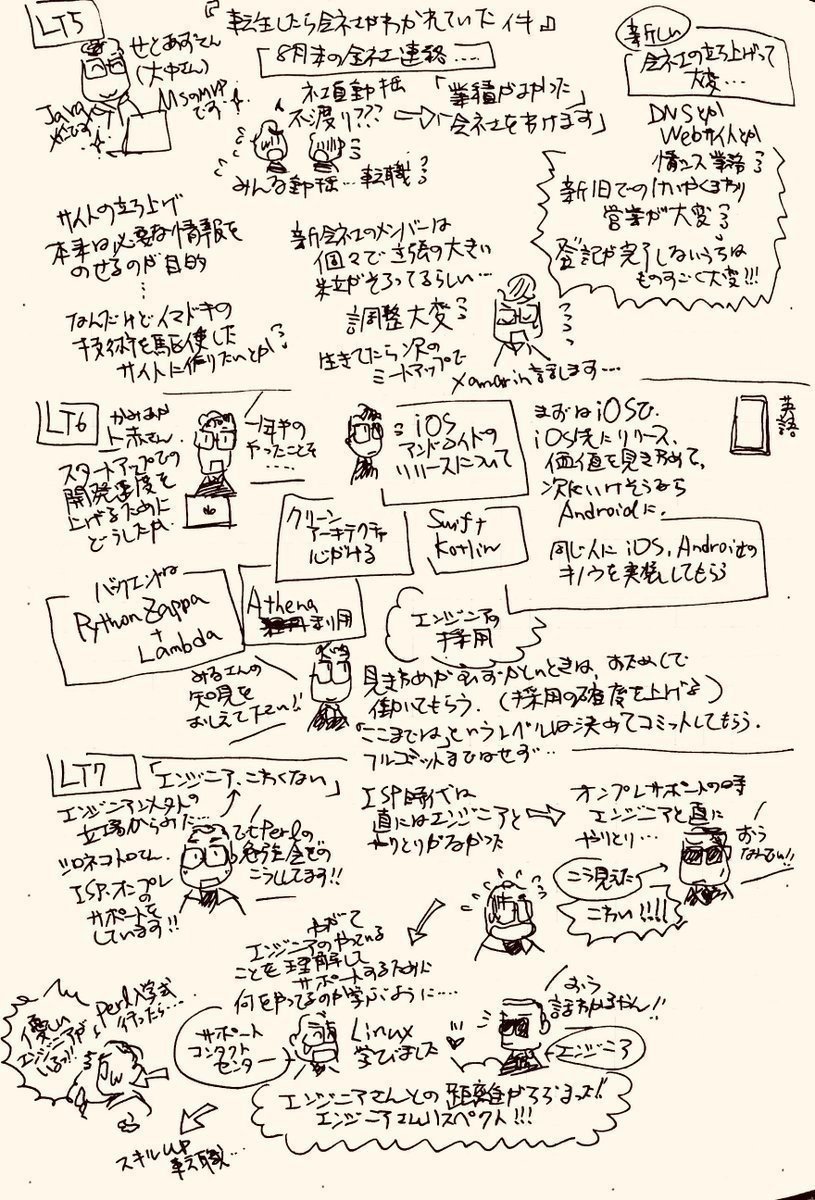 LT5
『転生したら会社がわかれていた件』
せとあずさん
(大中さん)
MSのMVP
です!
Java
8月末の全社連絡....
社員動揺
不渡り???
「業績がよかった」
「会社をわけます」
みんな動揺…転職
新しい
会社の立ち上げって
大変…
DNSとか
Webサイトとか
情シス業務
新旧でのけいやくまわり
営業が大変
登記が完了しないうちは
ものすごく大変!!!
サイトの立ち上げ
本来は必要な情報を
のせるのが目的
…
なんだけどイマドキの
技術を駆使した
サイトに作りたいとか
新会社のメンバーは
個々で主張の大きい
がそろってるらしい…
調整大変
生きてたら次の
ミートアップで
Xamarin話します…
LT6
スタートアップでの
開発速度を
上げるために
どうしたか
一年半の
やったことを
....
iOS
アンドロイドの
リリースについて
まずはiOSで
iOS先にリリース、
価値を見きわめて、
次にいけそうなら
Androidに.
英語
クリーン
アーキテクチャ
心がける
Swift
Kotlin
同じ人にiOS, Androidの
キノウを実装してもらう
バックエンドは
Python Zappa
+
Lambda
Athena
利用
エンジニアの
採用
みなさんの
知見を
おしえて下さい!!
見きわめがむずかしいときは、おためしで
働いてもらう.(採用の確度を上げる)
「ここまでは」というレベルは決めてコミットしてもらう.
フルコミットまではせず…
LT7
「エンジニア、こわくない」
エンジニア以外の
立場からみた…
シロネコトロさん.
ISP、オンプレ
の
サポートを
しています!!
ISP時代は
直にはエンジニアと
やりとりがなかった
オンプレサポートの時
エンジニアと直に
やりとり…
おう
なんでい!!
こう見えた
こわい!!!!
やがて
エンジニアのやっている
ことを理解して
サポートするために
何をやってるのか学ぶように....
サポート
コンタクト
センター
Linux
学びました
おう
話わかるやん!!
エンジニア
エンジニアさんとの距離がちぢまった!!
エンジニアさんリスペクト!!!
Perl入学式
行ったら…
優しい
エンジニアが
いるっ!!
スキルUP
転職…